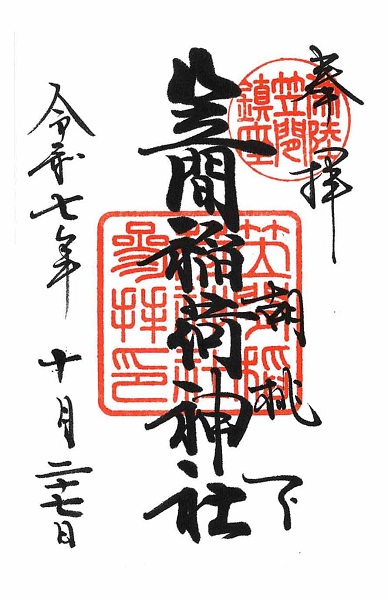 奉拝
胡桃下
笠間稲荷神社
令和七年 十月二十七日
常陸
笠間
鎮座
笠間稲
荷神社
參拝印